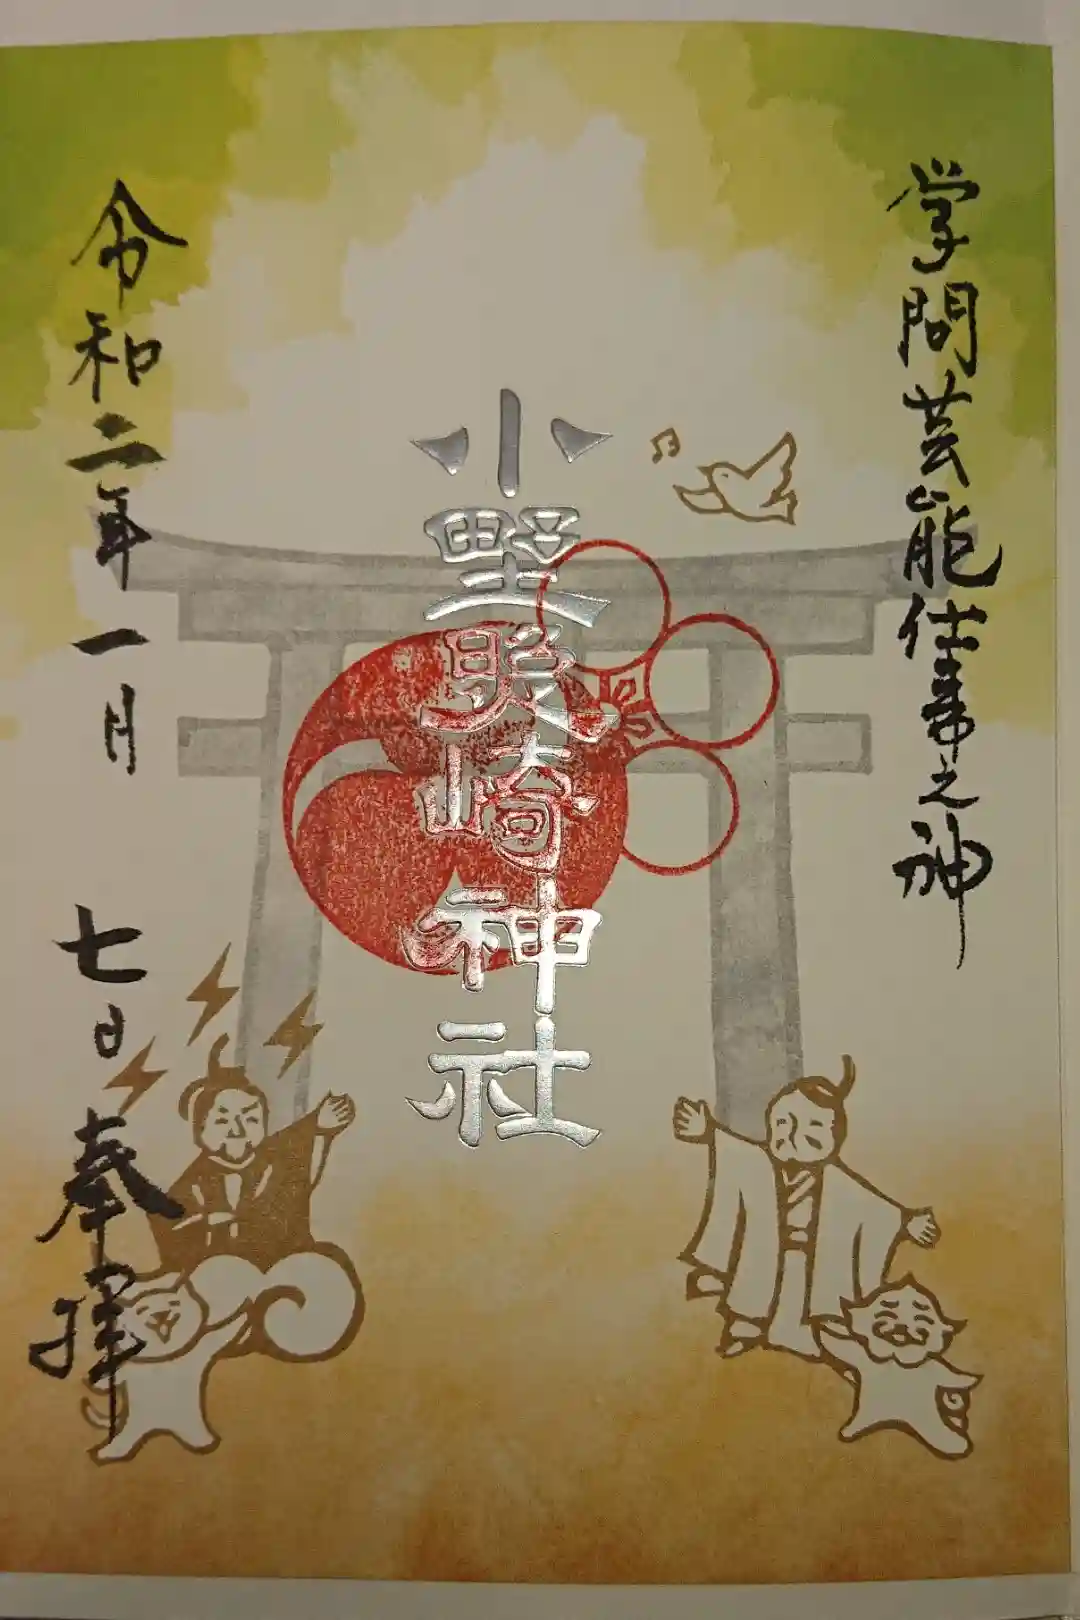 学問芸能仕事之神
小野照崎神社
令和二年一月七日奉拝